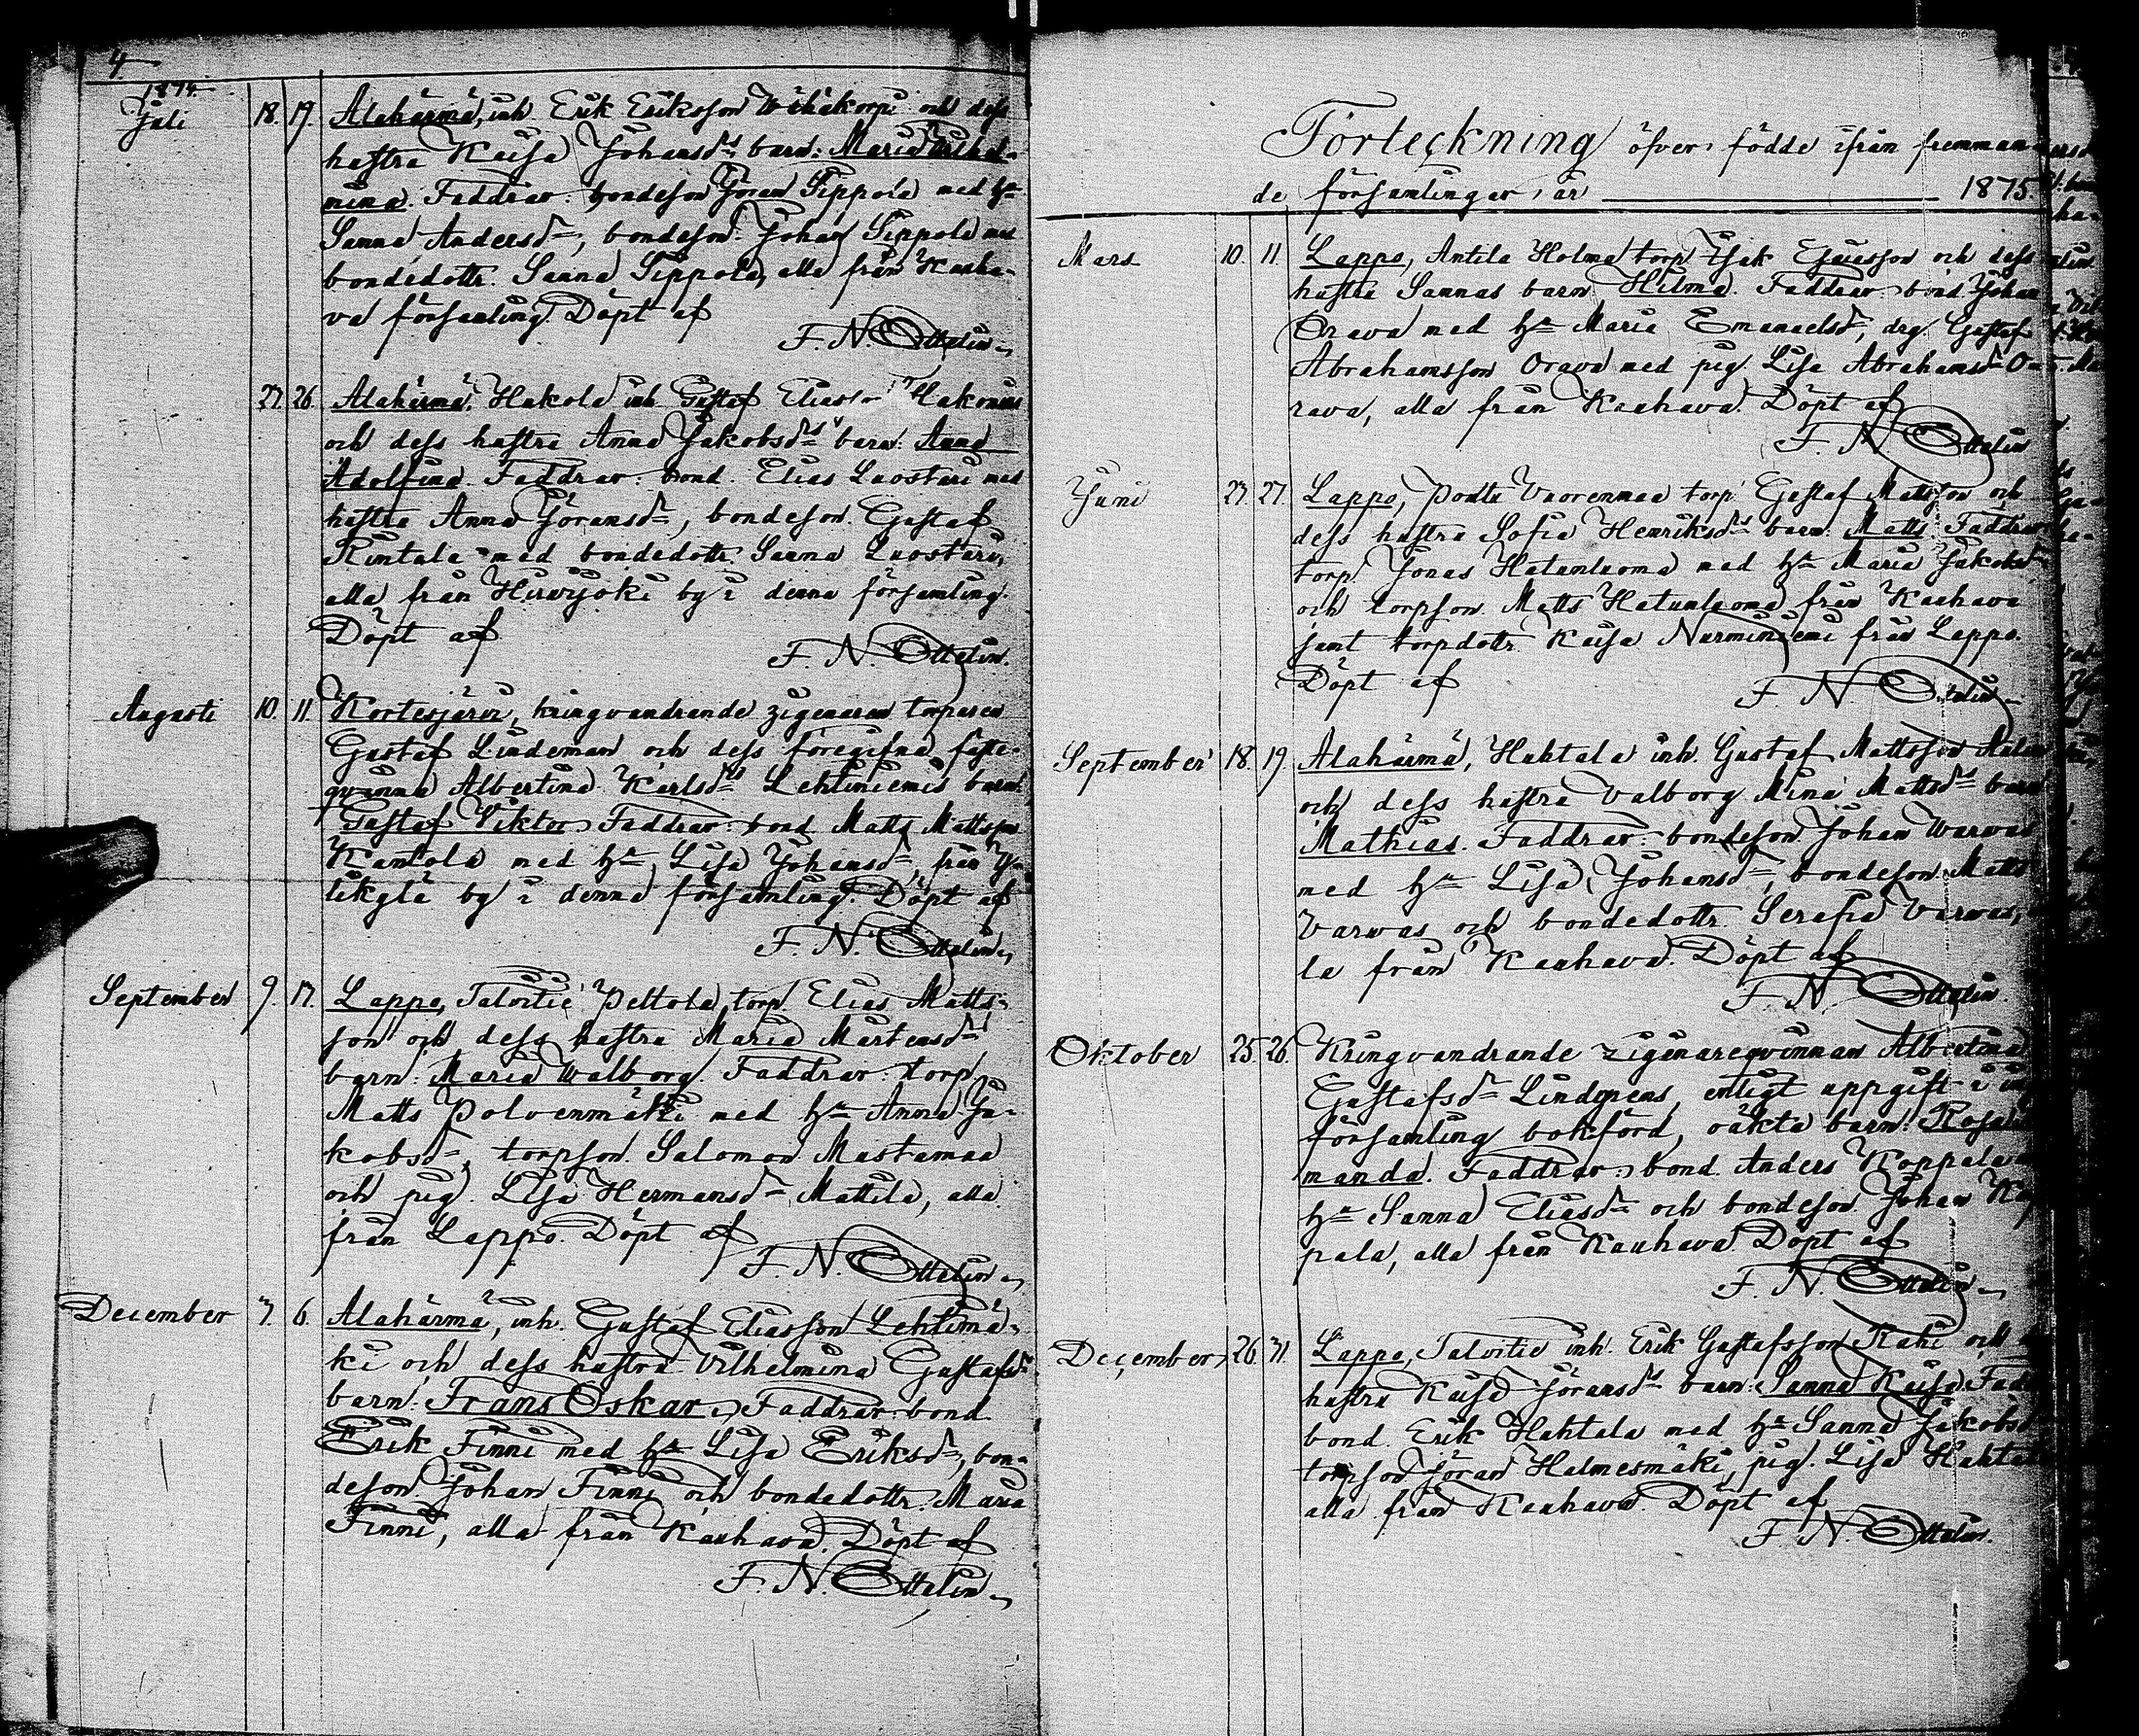 4
1874
Juli 18. 19. Alahärmä, inh. Erik Eriksson Wihakorpi och dess
hustru Kaisa Johansd:s barn: Maria Vilhel-
mina. Faddrar: bondeson Jöran Tippola med h:u
Sanna Andersd:r, bondeson Johan Tippola med
bondedottr. Sanna Tippola, alla från Kauha-
va församling. Döpt af
F. N. Ottelin.
27. 26. Alahärmä, Hakola inh. Gustaf Eliasson
och dess hustru Anna Jakobsd:s barn: Anna
Adolfina. Faddrar: bond. Elias Luostari med
hustru Anna Jöransd:r, bondeson Gustaf
Rintala med bondedottr Sanna Luostari,
alla från Hirvijoki by i denna församling.
Döpt af
F. N. Ottelin.
Augusti 10. 11. Kortesjärvi, kringvandrande zigenaren torparen
Gustaf Lindeman och dess föregifna fäste-
qvinna Albertina Karlsd:r Lehtiniemis barn:
Gustaf Viktor. Faddrar: bond Matts Mattsson
Kantola med h:u Lisa Johansd:r, från Y-
likylä by i denna församling. Döpt af
F. N. Ottelin.
September 9. 17. Lappo, Talvitie Peltola, torp. Elias Matts-
son och dess hustru Maria Mårtensd:s
barn: Maria Walborg. Faddrar: torp.
Matts Polvenmäki med h:u Anna Ja-
kobsd:r, torpson Salomon Mustamaa
och pig. Lisa Hermansd:r Mattila, alla
från Lappo. Döpt af
F. N. Ottelin.
December 7. 6. Alahärmä, inh. Gustaf Eliasson Lehtimä-
ki och dess hustru Vilhelmina Gustafsd:s
barn: Frans Oskar. Faddrar: bond
Erik Finni med h:u Lisa Eriksd:r, bon-
deson Johan Finni och bondedottr. Maria
Finni, alla från Kauhava. Döpt af
F. N. Ottelin.
Förteckning öfver födde ifrån fremman-
de församlingar, år 1875.
Mars 10. 11. Lappo, Antila Holma torp Isak Esaiasson och dess
hustru Sannas barn: Hilma. Faddrar: bond Johan
Orava med h:u Maria Emanuelsd:r, drg Gustaf
Abrahamsson Orava med pig. Lisa Abrahamsd:r O-
rava, alla från Kauhava. Döpt af
F. N. Ottelin
Juni 27. 27. Lappo, Poutu Vuorenmaa torp. Gustaf Mattsson och
dess hustru Sofia Henriksd:s barn: Matts. Faddrar
torp. Jonas Hatunluoma med h:u Maria Jakobsd:r
och torpson Matts Hatunluoma från Kauhava
samt torpdottr. Kaisa Nurminiemi från Lappo.
Döpt af
F. N. Ottelin.
September 18. 19. Alahärmä, Huhtala inh. Gustaf Mattsson
och dess hustru Valborg Mina Mattsd:s barn
Mathias. Faddrar: bondeson Johan Warwas
med h:u Lisa Johansd:r, bondeson Matts
Varwas och bondedottr. Serafia Varwas,
la från Kauhava. Döpt af
F. N. Ottelin.
Oktober 25. 26. Kringvandrande zigenareqvinnan Albertina
Gustafsd:r Lindgrens, enligt uppgift i
församling bokförd, oäkta barn: Rosa
manda. Faddrar: bond. Anders Koppala
h:u Sanna Eliasd:r och bondeson Johan Kop
pala, alla från Kauhava. Döpt af
F. N. Ottelin.
December 26. 31. Lappo, Talvitie inh. Erik Gustafsson Rahi och
hustru Kaisa Jöransd:s barn: Sanna Kaisa. Fad
bond. Erik Huhtala med h:u Sanna Jakobsd
torpson Jöran Halmesmäki, pig. Lisa Huhtal
alla från Kauhava. Döpt af
F. N. Ottelin.